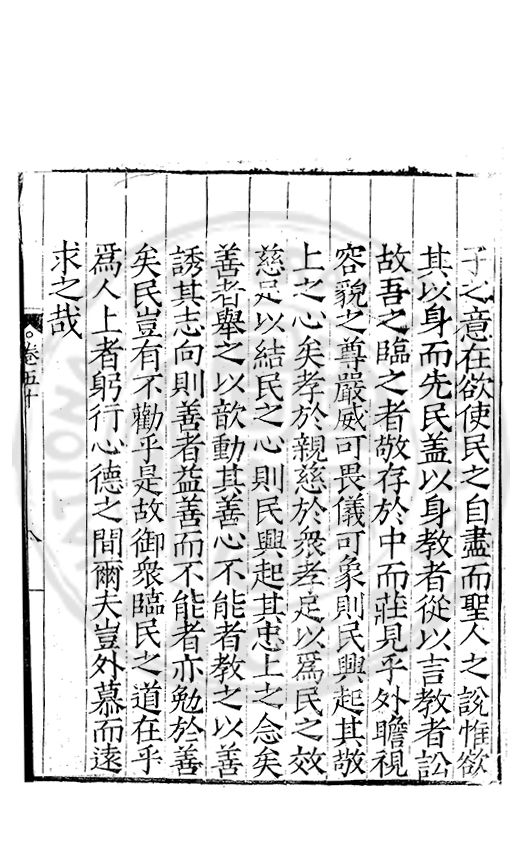 子之意在欲使民之自盡而聖人之說惟欲
其以身而先民盖以身教者從以言教者訟
故吾之臨之者敬存於中而莊見乎外瞻視
容貌之尊嚴威可畏儀可象則民興起其敬
上之心矣孝於親慈於衆孝足以爲民之效
慈足以結民之心則民興起其忠上之念矣
善者舉之以歆動其善心不能者教之以善
誘其志向則善者益善而不能者亦勉於善
矣民豈有不勸乎是故御衆臨民之道在乎
爲人上者躬行心德之間爾夫豈外慕而遠
求之哉
卷五十
八